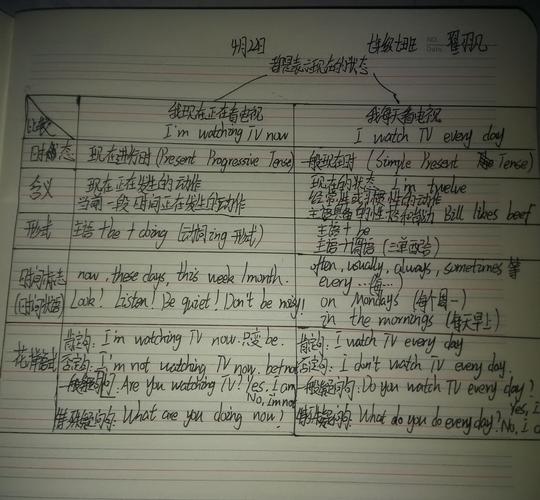 4月22日 七年级七班
都是表示现在的状态
比较
我现在正在看电视
I'm watching TV now
我每天看电视
I watch TV every day
时态
现在进行时 (Present Progressive Tense)
一般现在时 (Simple Present Tense)
含义
现在正在发生的动作
当前一段时间正在发生的动作
现在的状态 I'm twelve
经常性或习惯性的动作
主语具备的性格和能力 Bill likes beef
形式
主语+be+doing (动词ing形式)
主语+be
主语+谓语 (三单配合)
时间标志
(时间状语)
now, these days, this week/month.
Look! Listen! Be quiet! Don't be noisy!
often, usually, always, sometimes 等
every...(每...)
on Mondays (每个周一)
in the mornings (每天早上)
肯定句: I'm watching TV now. 只变be.
否定句: I'm not watching TV now. be+not
一般疑问句: Are you watching TV? Yes, I am
No, I'm not
特殊疑问句: What are you doing now?
肯定句: I watch TV every day
否定句: I don't watch TV every day.
一般疑问句: Do you watch TV every day?
Yes, I
特殊疑问句: What do you do every day? No, I